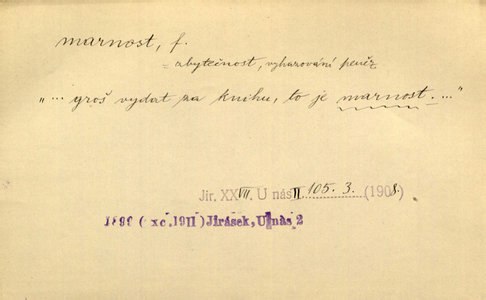 marnost, f.
= zbytečnost, vyhazování peněz
„... groš vydat za knihu, to je marnost. ..."
Jir. XXVII. U nás II 105. 3. (1908.
1899 ( xc .1911) Jirásek, U nás 2